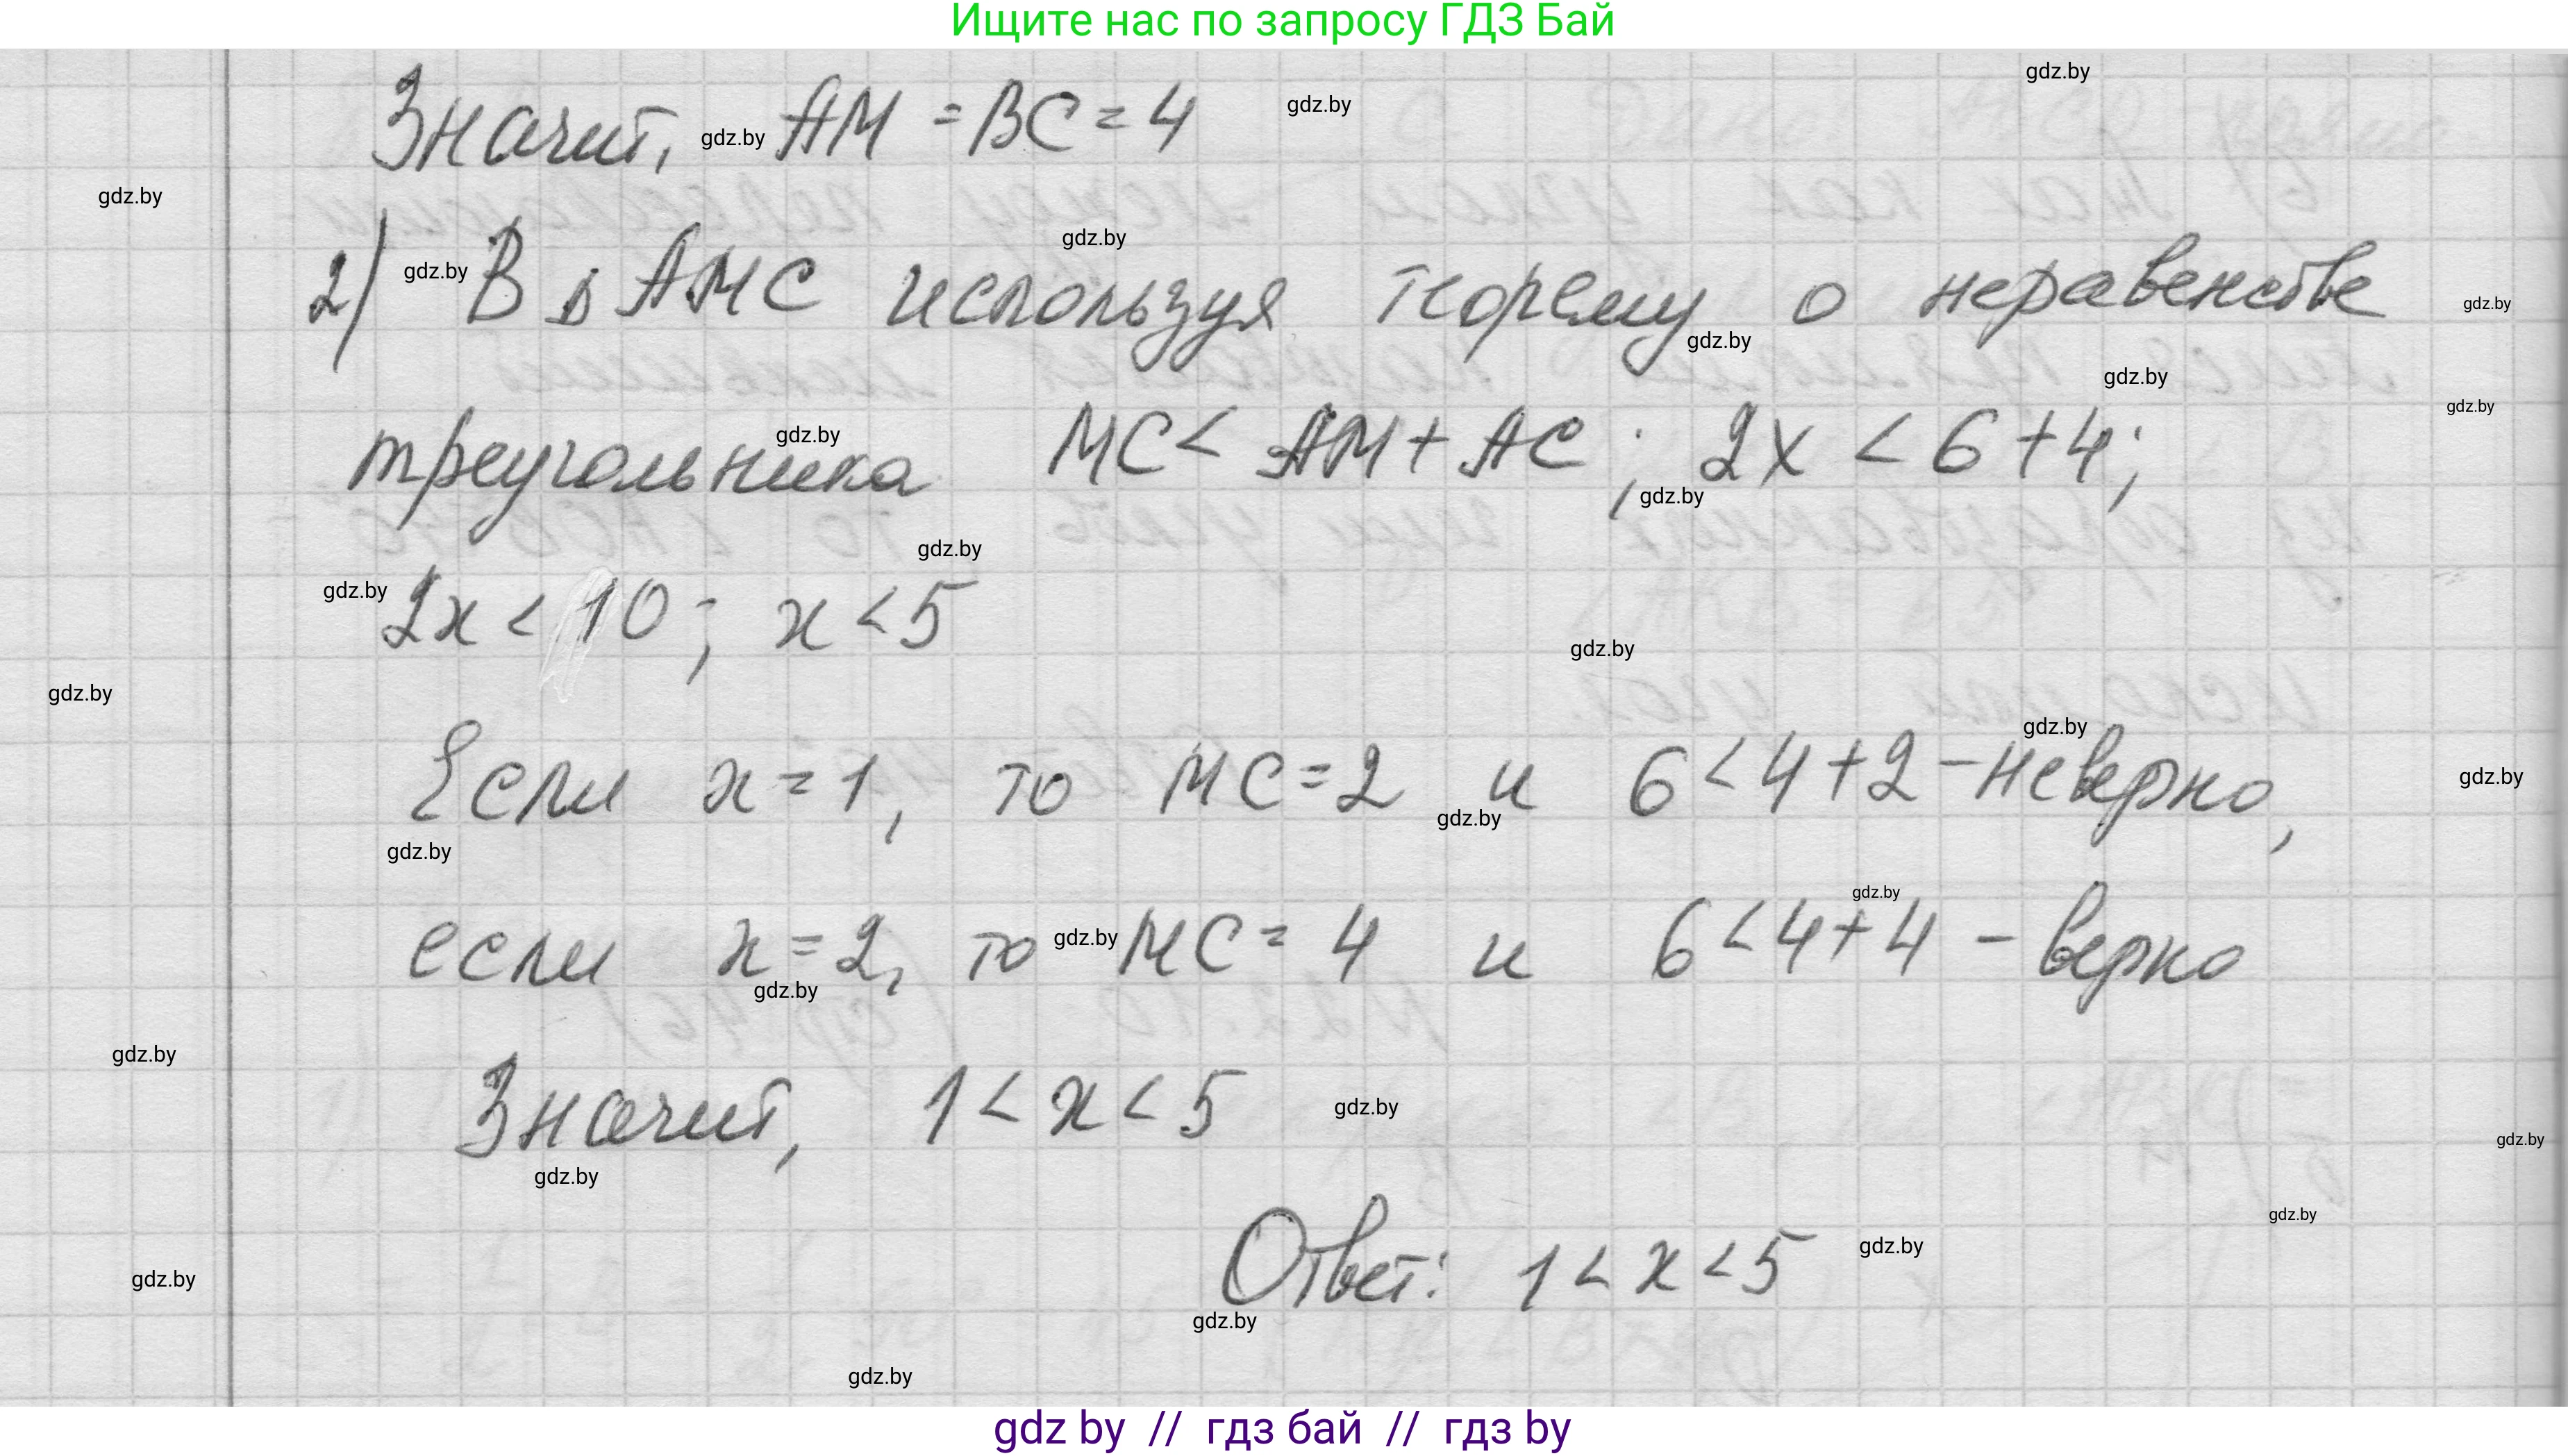 Ищите нас по запросу ГДЗ Бай
gdz.by
Значит, gdz.by AM = BC = 4 gdz.by
gdz.by
gdz.by
2) gdz.by В Δ AMC используя теорему о неравенстве gdz.by
gdz.by
gdz.by
gdz.by
треугольника gdz.by MC < AM + AC ; 2x < 6 + 4;
gdz.by
gdz.by
gdz.by 2x < 10 ; x < 5
gdz.by
gdz.by
gdz.by
Если x = 1, то MC = 2 и 6 < 4 + 2 - неверно, gdz.by
gdz.by
gdz.by
gdz.by
если x = 2, то gdz.by MC = 4 и 6 < 4 + 4 - верно
gdz.by
gdz.by
Значит, 1 < x < 5 gdz.by
gdz.by
gdz.by
gdz.by
Ответ: 1 < x < 5 gdz.by
gdz.by
gdz.by
gdz.by
gdz by // гдз бай // гдз by